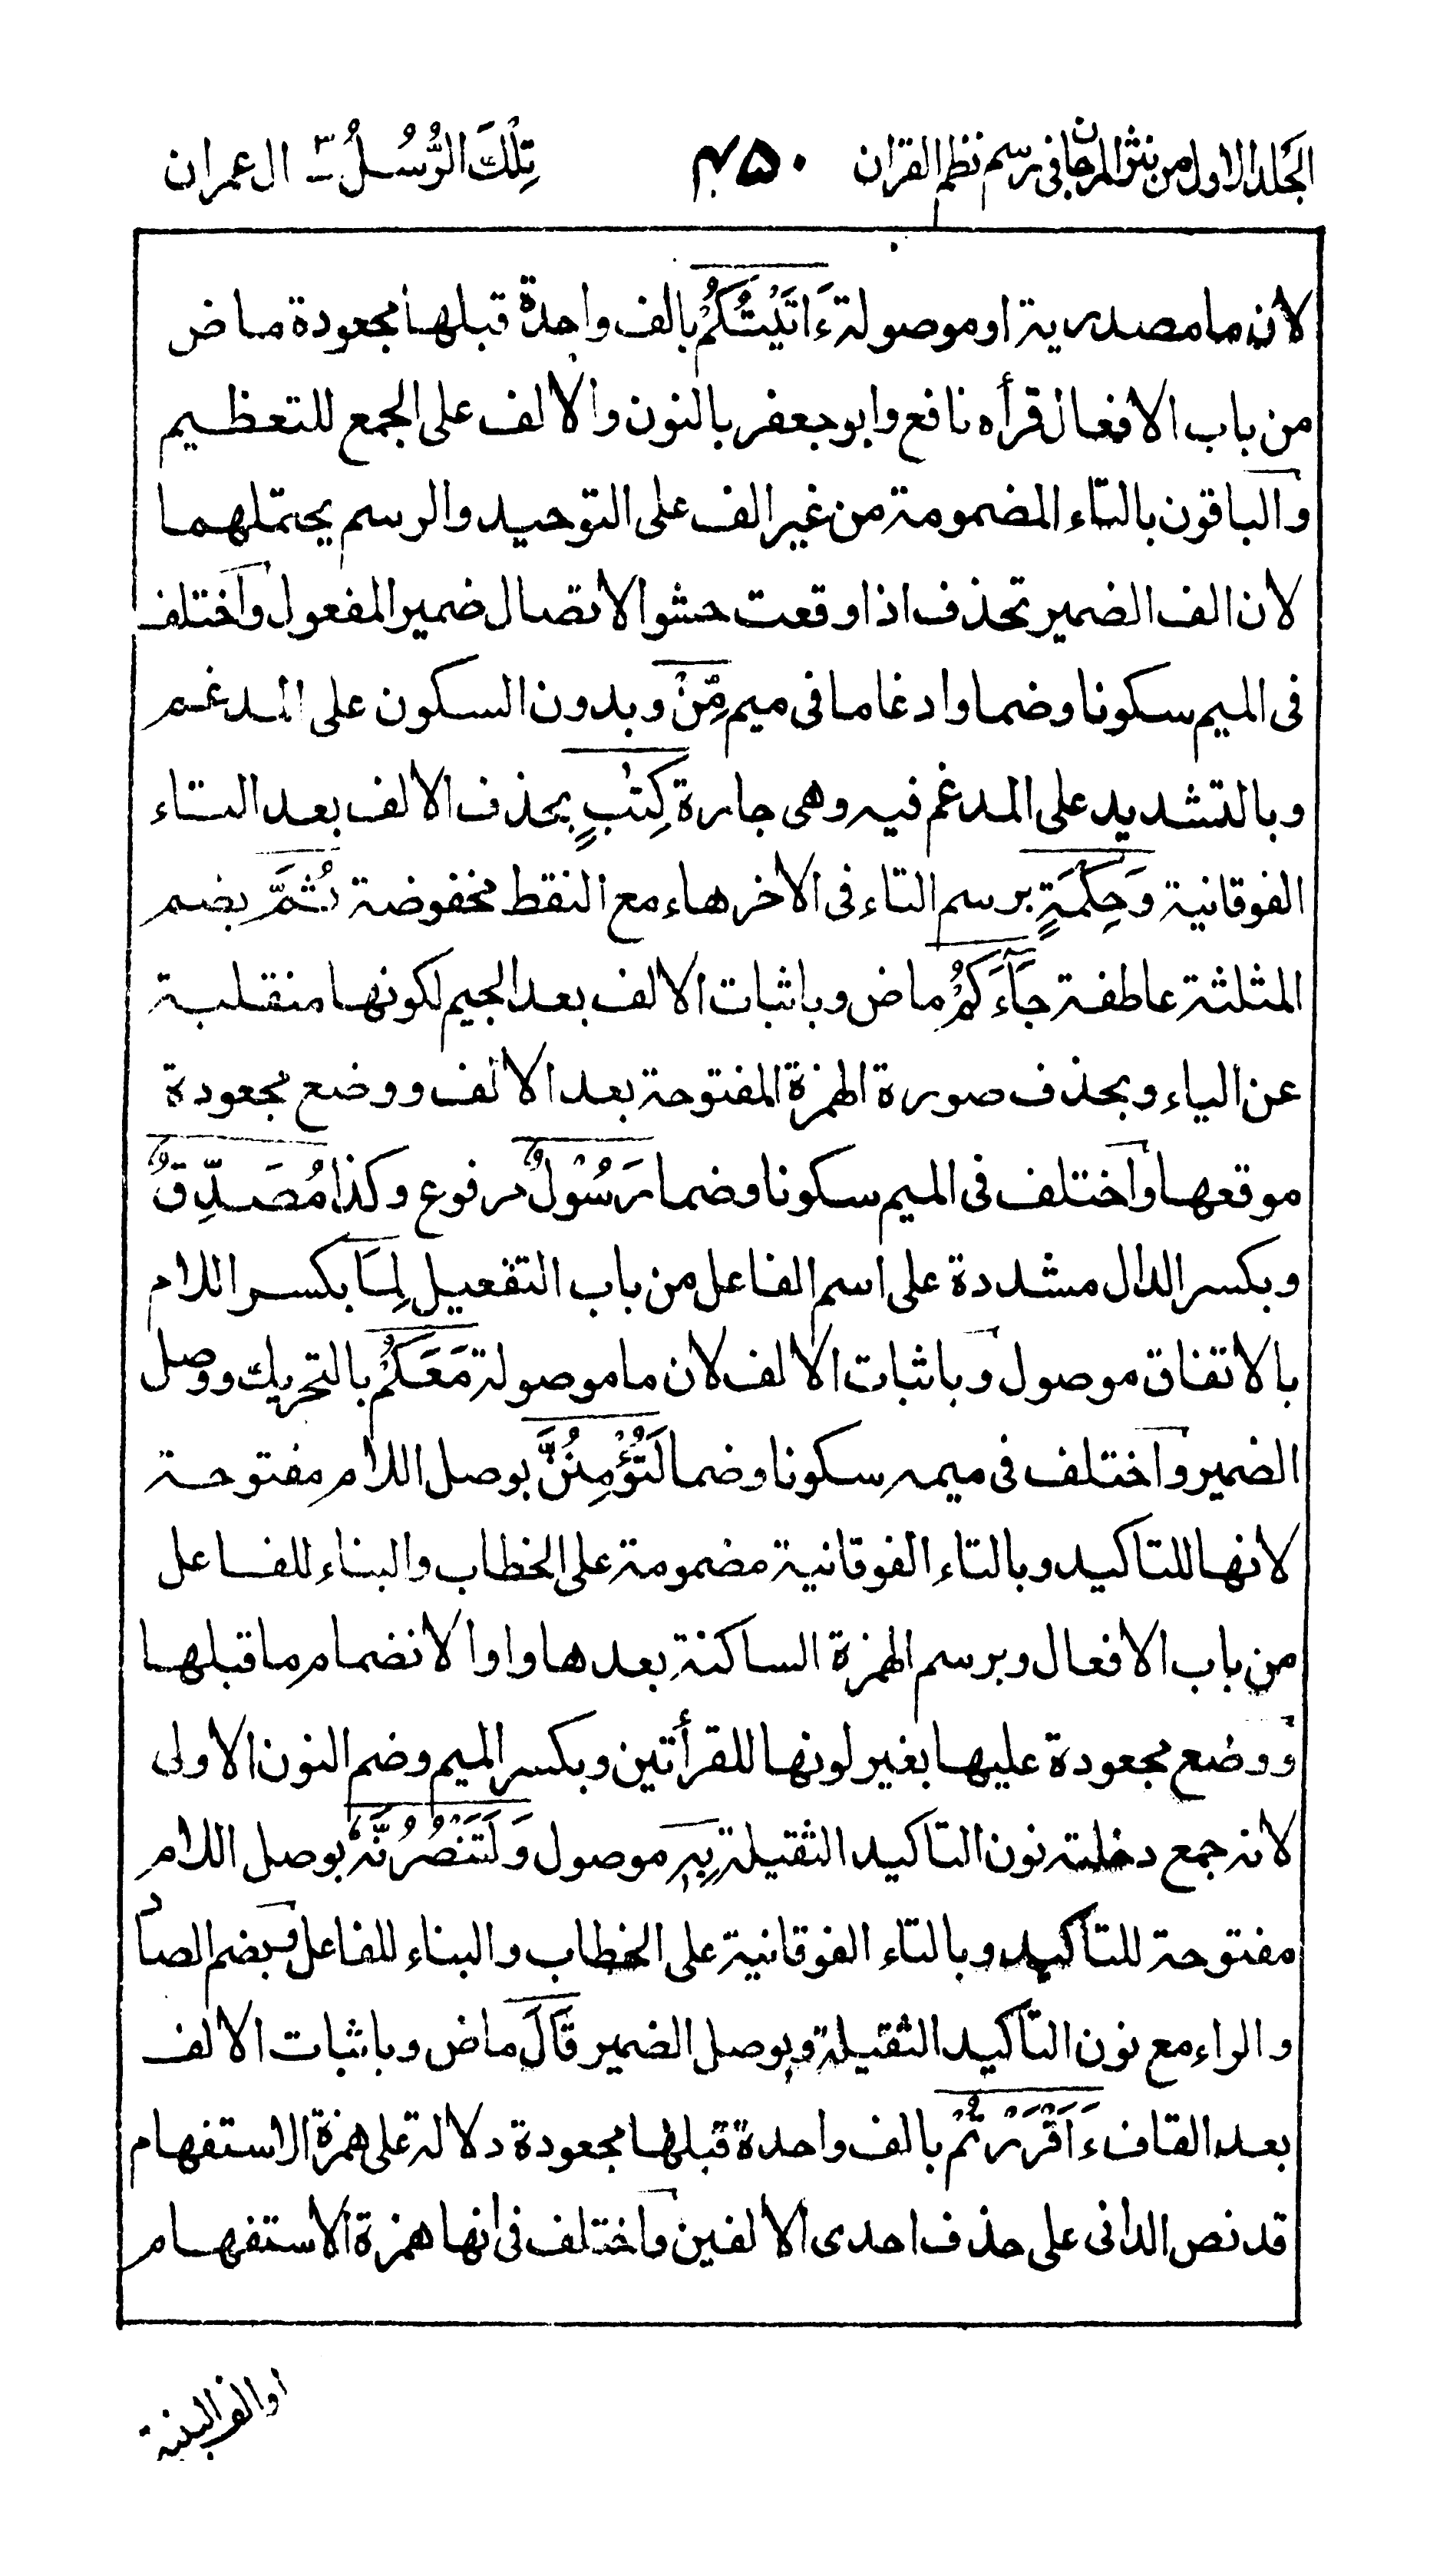 الجلد الاول من نثر المرجان فى رسم نظم القران ۴۵۰ تِلْكَ الرُّسُلُ ۳ ال عمران
لان ما مصدرية او موصولة ءَاتَيْتُكُمْ بالف واحدة قبلها مجعودة ماض
من باب الافعال قرأه نافع وابو جعفر بالنون والالف على الجمع للتعظيم
والباقون بالتاء المضمومة من غير الف على التوحيد والرسم يحتملهما
لان الف الضمير تحذف اذا وقعت حشوا لاتصال ضمير المفعول واختلف
فى الميم سكونا وضما وادغاما فى ميم مِّنْ وبدون السكون على المدغم
وبالتشديد على المدغم فيه وهى جارة كِتٰبٍ بحذف الالف بعد التاء
الفوقانية وَحِكْمَةٍ برسم التاء فى الاخر هاء مع النقط مخفوضة ثُمَّ بضم
المثلثة عاطفة جَآءَكُمْ ماض وباثبات الالف بعد الجيم لكونها منقلبة
عن الياء وبحذف صورة الهمزة المفتوحة بعد الالف ووضع مجعودة
موقعها واختلف فى الميم سكونا وضما رَسُوْلٌ مرفوع وكذا مُصَدِّقٌ
وبكسر الدال مشددة على اسم الفاعل من باب التفعيل لِمَا بكسر اللام
بالاتفاق موصول وباثبات الالف لان ما موصولة مَعَكُمْ بالتحريك ووصل
الضمير واختلف فى ميمه سكونا وضما لَتُؤْمِنُنَّ بوصل اللام مفتوحة
لانها للتاكيد وبالتاء الفوقانية مضمومة على الخطاب والبناء للفاعل
من باب الافعال وبرسم الهمزة الساكنة بعدها واوا لانضمام ما قبلها
ووضع مجعودة عليها بغير لونها للقرأتين وبكسر الميم وضم النون الاولى
لانه جمع دخلته نون التاكيد الثقيلة بِهٖ موصول وَلَتَنْصُرُنَّهٗ بوصل اللام
مفتوحة للتاكيد وبالتاء الفوقانية على الخطاب والبناء للفاعل وبضم الصاد
والراء مع نون التاكيد الثقيلة وبوصل الضمير قَالَ ماض وباثبات الالف
بعد القاف ءَاَقْرَرْتُمْ بالف واحدة قبلها مجعودة دلالة على همزة الاستفهام
قد نص الدانى على حذف احدى الالفين واختلف فى انها همزة الاستفهام
او الف البنية